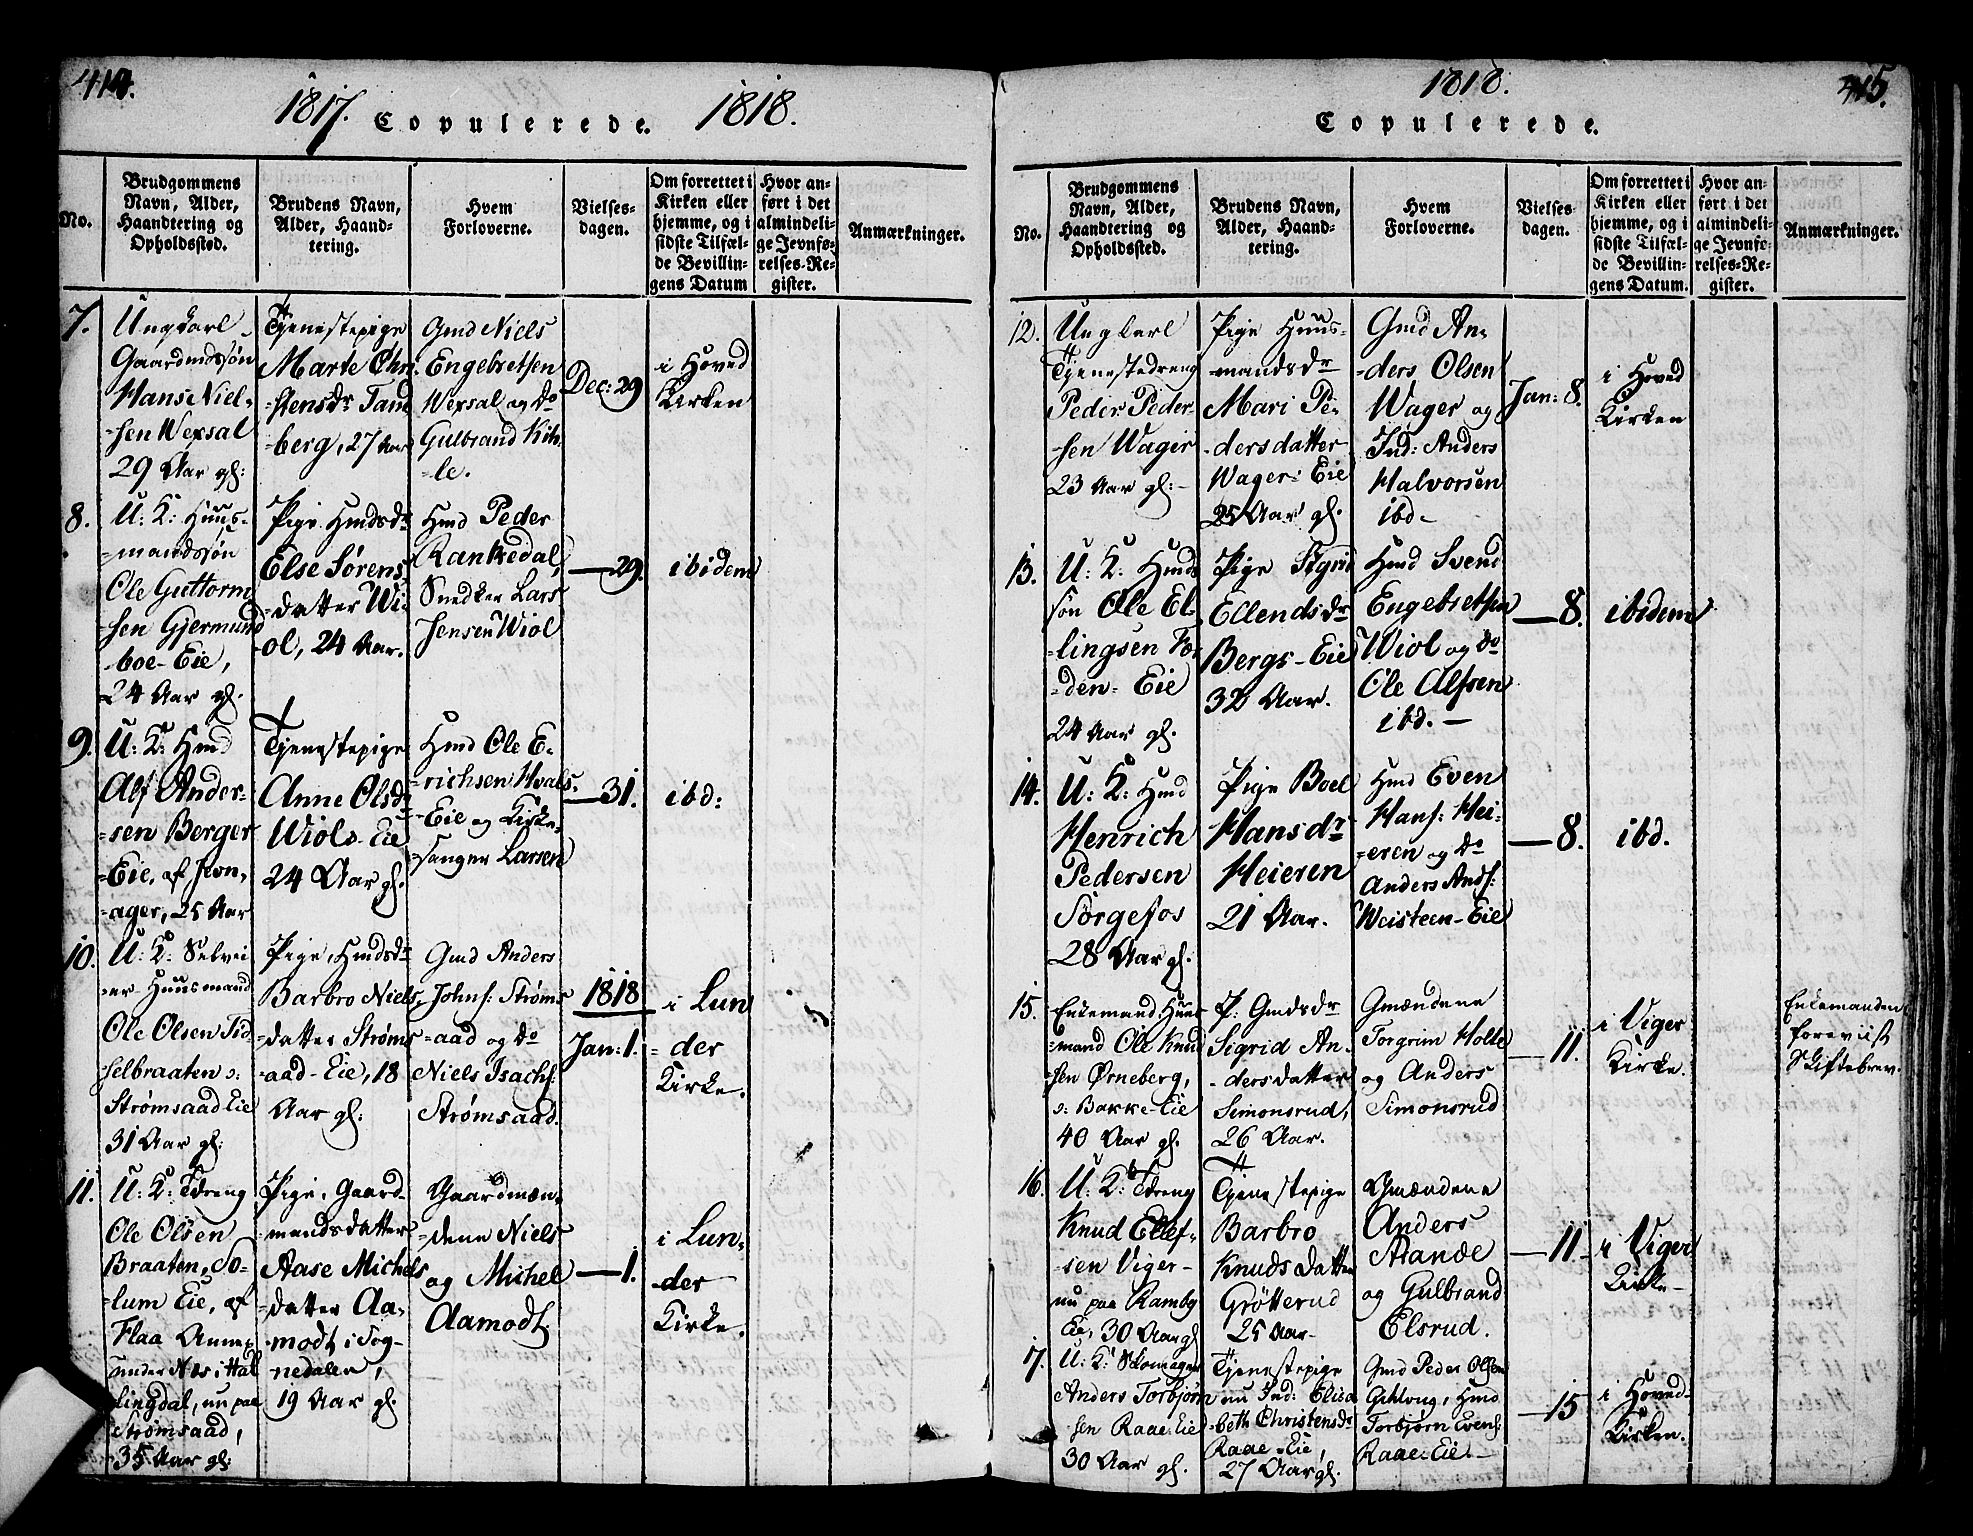 414.
1817. Copulerede. 1818.
No.
Brudgommens
Navn, Alder,
Haandtering og
Opholdssted.
Brudens Navn,
Alder, Haand-
tering.
Hvem
Forloverne.
Vielses-
dagen.
Om forrettet i
Kirken eller
hjemme, og i
sidste Tilfæl-
de Bevillin-
gens Datum
Hvor an-
ført i det
almindeli-
ge Jevnfø-
relses-Re-
gister.
Anmærkninger.
7.
Ungkarl
Gaardmdssøn
Hans Niel-
-sen Wexsal
29 Aar gl:
Tjenestepige
Marte Chri-
-stensdr Tand
berg, 27 Aar
Gmd Niels
Engebretsen
Wexsal og do
Gulbrand Kih-
-le.
Dec: 29
i Hoved
Kirken
8.
U: K: Huus-
-mandssøn
Ole Guttorm
-sen Gjermund
-boe-Eie,
24 Aar gl.
Pige Hmdsdr
Else Sørens
-datter Wi-
-ol, 24 Aar.
Hmd Peder
Rankedal,
Snedker Lars
Jensen Wiol
—29.
ibidem
9.
U: K: Hmd
Alf Ander-
-sen Berger
-Eie, af Jevn-
-ager, 25 Aar
Tjenestepige
Anne Olsdr
Wiols-Eie
24 Aar gl.
Hmd Ole E-
-richsen Hvals-
-Eie og Kirke-
-sanger Larsen
—31.
ibd:
10.
U: K: Selvei
-er Huusmand
Ole Olsen Tid-
selbraaten o:
Strømsaad Eie
31 Aar gl:
Pige, Hmdsdr
Barbro Niels-
-datter Strøms
-aad-Eie, 18
Aar gl:
Gmd Anders
Johns: Strøms
-aad og do
Niels Isachs:
Strømsaad.
1818
Jan: 1.
i Lun
-der
Kirke.
11.
U: K: Tdreng
Ole Olsen
Braaten, So-
-lum Eie, af
Flaa Annex
under Næs i Hal
lingdal, nu paa
Strømsaad,
35 Aar gl:
Pige, Gaard-
-mandsdatter
Aase Michels
-datter Aa-
-modt i Sog-
nedalen,
19 Aar gl.
Gaardmæn-
-dene Niels
og Michel
Aamodt.
—1.
i Lun-
-der
Kirke.
1818.
415.
Copulerede.
No.
Brudgommens
Navn, Alder,
Haandtering og
Opholdssted.
Brudens Navn,
Alder, Haand-
tering.
Hvem
Forloverne.
Vielses-
dagen.
Om forrettet i
Kirken eller
hjemme, og i
sidste Tilfæl-
de Bevillin-
gens Datum.
Hvor an-
ført i det
almindeli-
ge Jevnfø-
relses-Re-
gister.
Anmærkninger.
12.
Ungkarl
Tjenestedreng
Peder Peder-
-sen Wager
23 Aar gl:-
Pige Huus-
-mandsdr
Mari Pe-
-dersdatter
Wager: Eie
25 Aar gl.
Gmd An-
-ders Olsen
Wager og
Ind: Anders
Halvorsen
ibd-
Jan: 8.
i Hoved
Kirken
13.
U: K: Hmds
søn Ole El-
-lingsen
-den- Eie
24 Aar gl.
Pige Sigrid
Ellendsdr
Bergs-Eie
32 Aar.
Hmd Svend
Engebretsen
Wiol og do
Ole Alfsen
ibd.—
—8.
ibidem
14.
U: K: Hmd
Henrich
Pedersen
Sørgefos
28 Aar gl.
Pige Boel
Hansdr
Heieren
21 Aar.
Hmd Even
Hans: Hei-
-eren og do
Anders Ands:
Weisteen-Eie
—8.
ibd.
15.
Enkemand, Huus
-mand Ole Knud
-sen Ørneberg,
o: Bakke-Eie
40 Aar gl.
P: Gmdsdr
Sigrid An-
-dersdatter
Simonsrud,
26 Aar.
Gmændene
Torgrim Holte
og Anders
Simonsrud
—11.
i Viger
Kirke.
Enkemanden
foreviist
Skiftebrev.
16.
U: K: Tdreng
Knud Ellef-
-sen Viger-
nu paa Ramby
Eie, 30 Aar gl
Tjenestepige
Barbro
Knudsdatter
Grøtterud
25 Aar-
Gmændene
Anders
og Gulbrand
Elsrud.
—11-
i Viger
Kirke-
17.
U: K: Skomager
Anders Torbjørn
-sen Raae-Eie
30 Aar gl.
Tjenestepige
nu Ind: Elisa
-beth Christensdr
Raae-Eie,
27 Aar gl.
Gmd Peder Olsen
Hmd
Torbjørn Evens:
Raae-Eie-
—15
i Hoved-
Kirken.